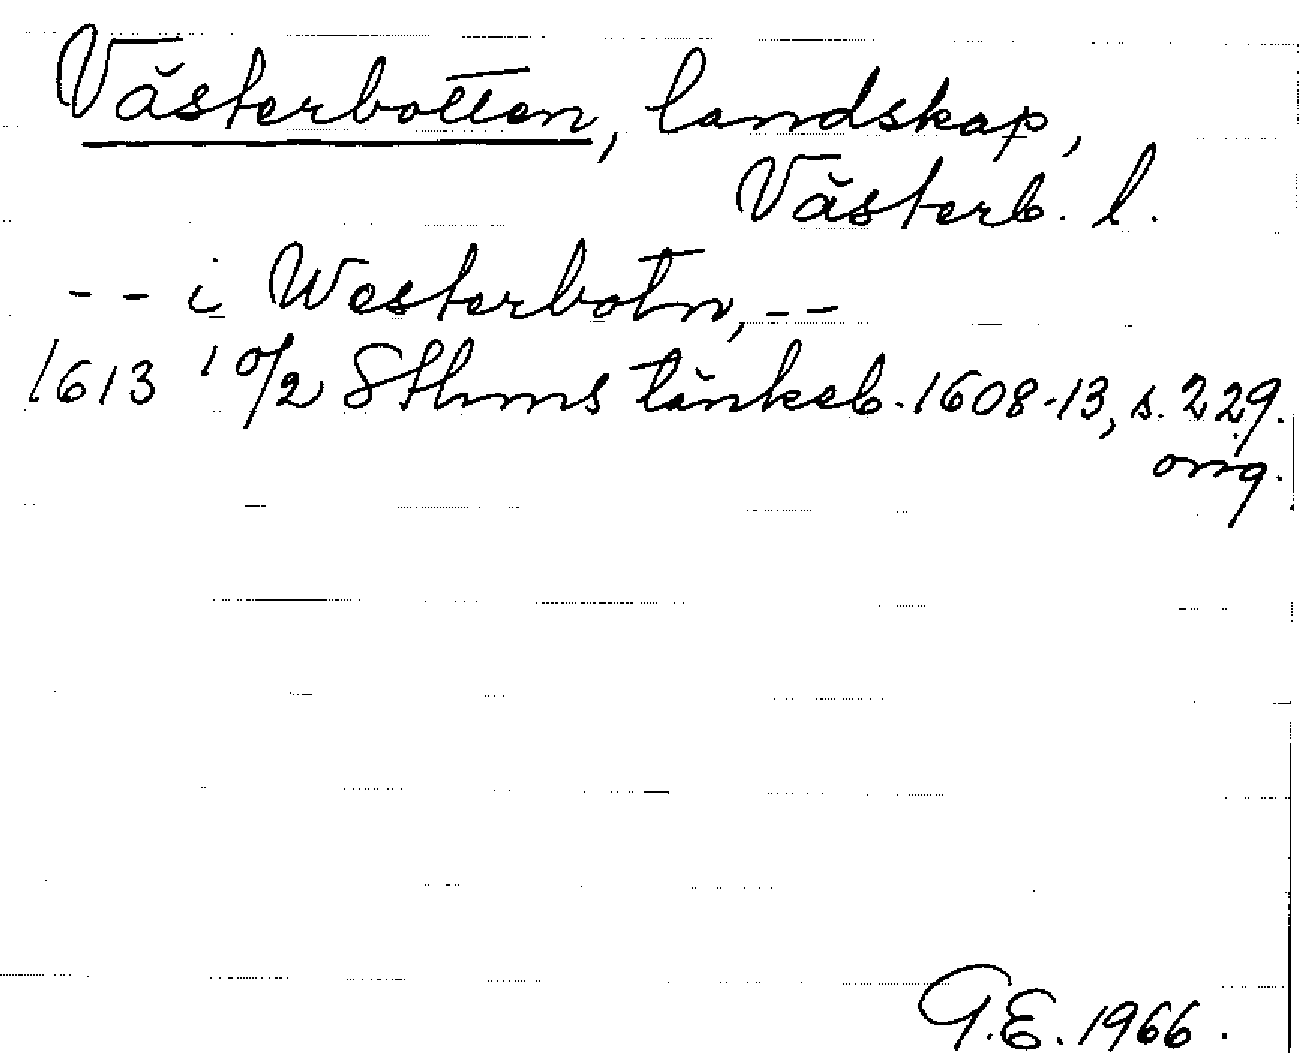 Västerbotten, landskap,
Västerb. l.
-- i Westerbotn, --
1613 10/2 Sthms tänkeb. 1608-13, s. 229.
orig.
G.E. 1966.